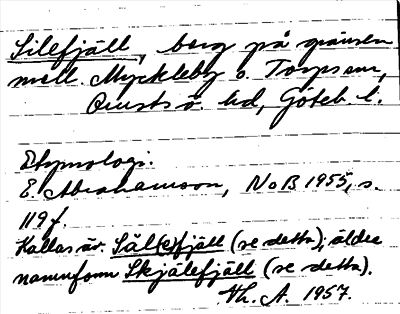 Silefjäll, berg på gränsen
mell. Myckleby o. Torps snr,
Orusts ö. hd, Göteb. l.
Etymologi.
E. Abrahamson, NoB 1955, s.
119 f.
Kallas äv. Säl(e)fjäll (se detta); äldre
namnform Skjälefjäll (se detta).
Vh. A. 1957.